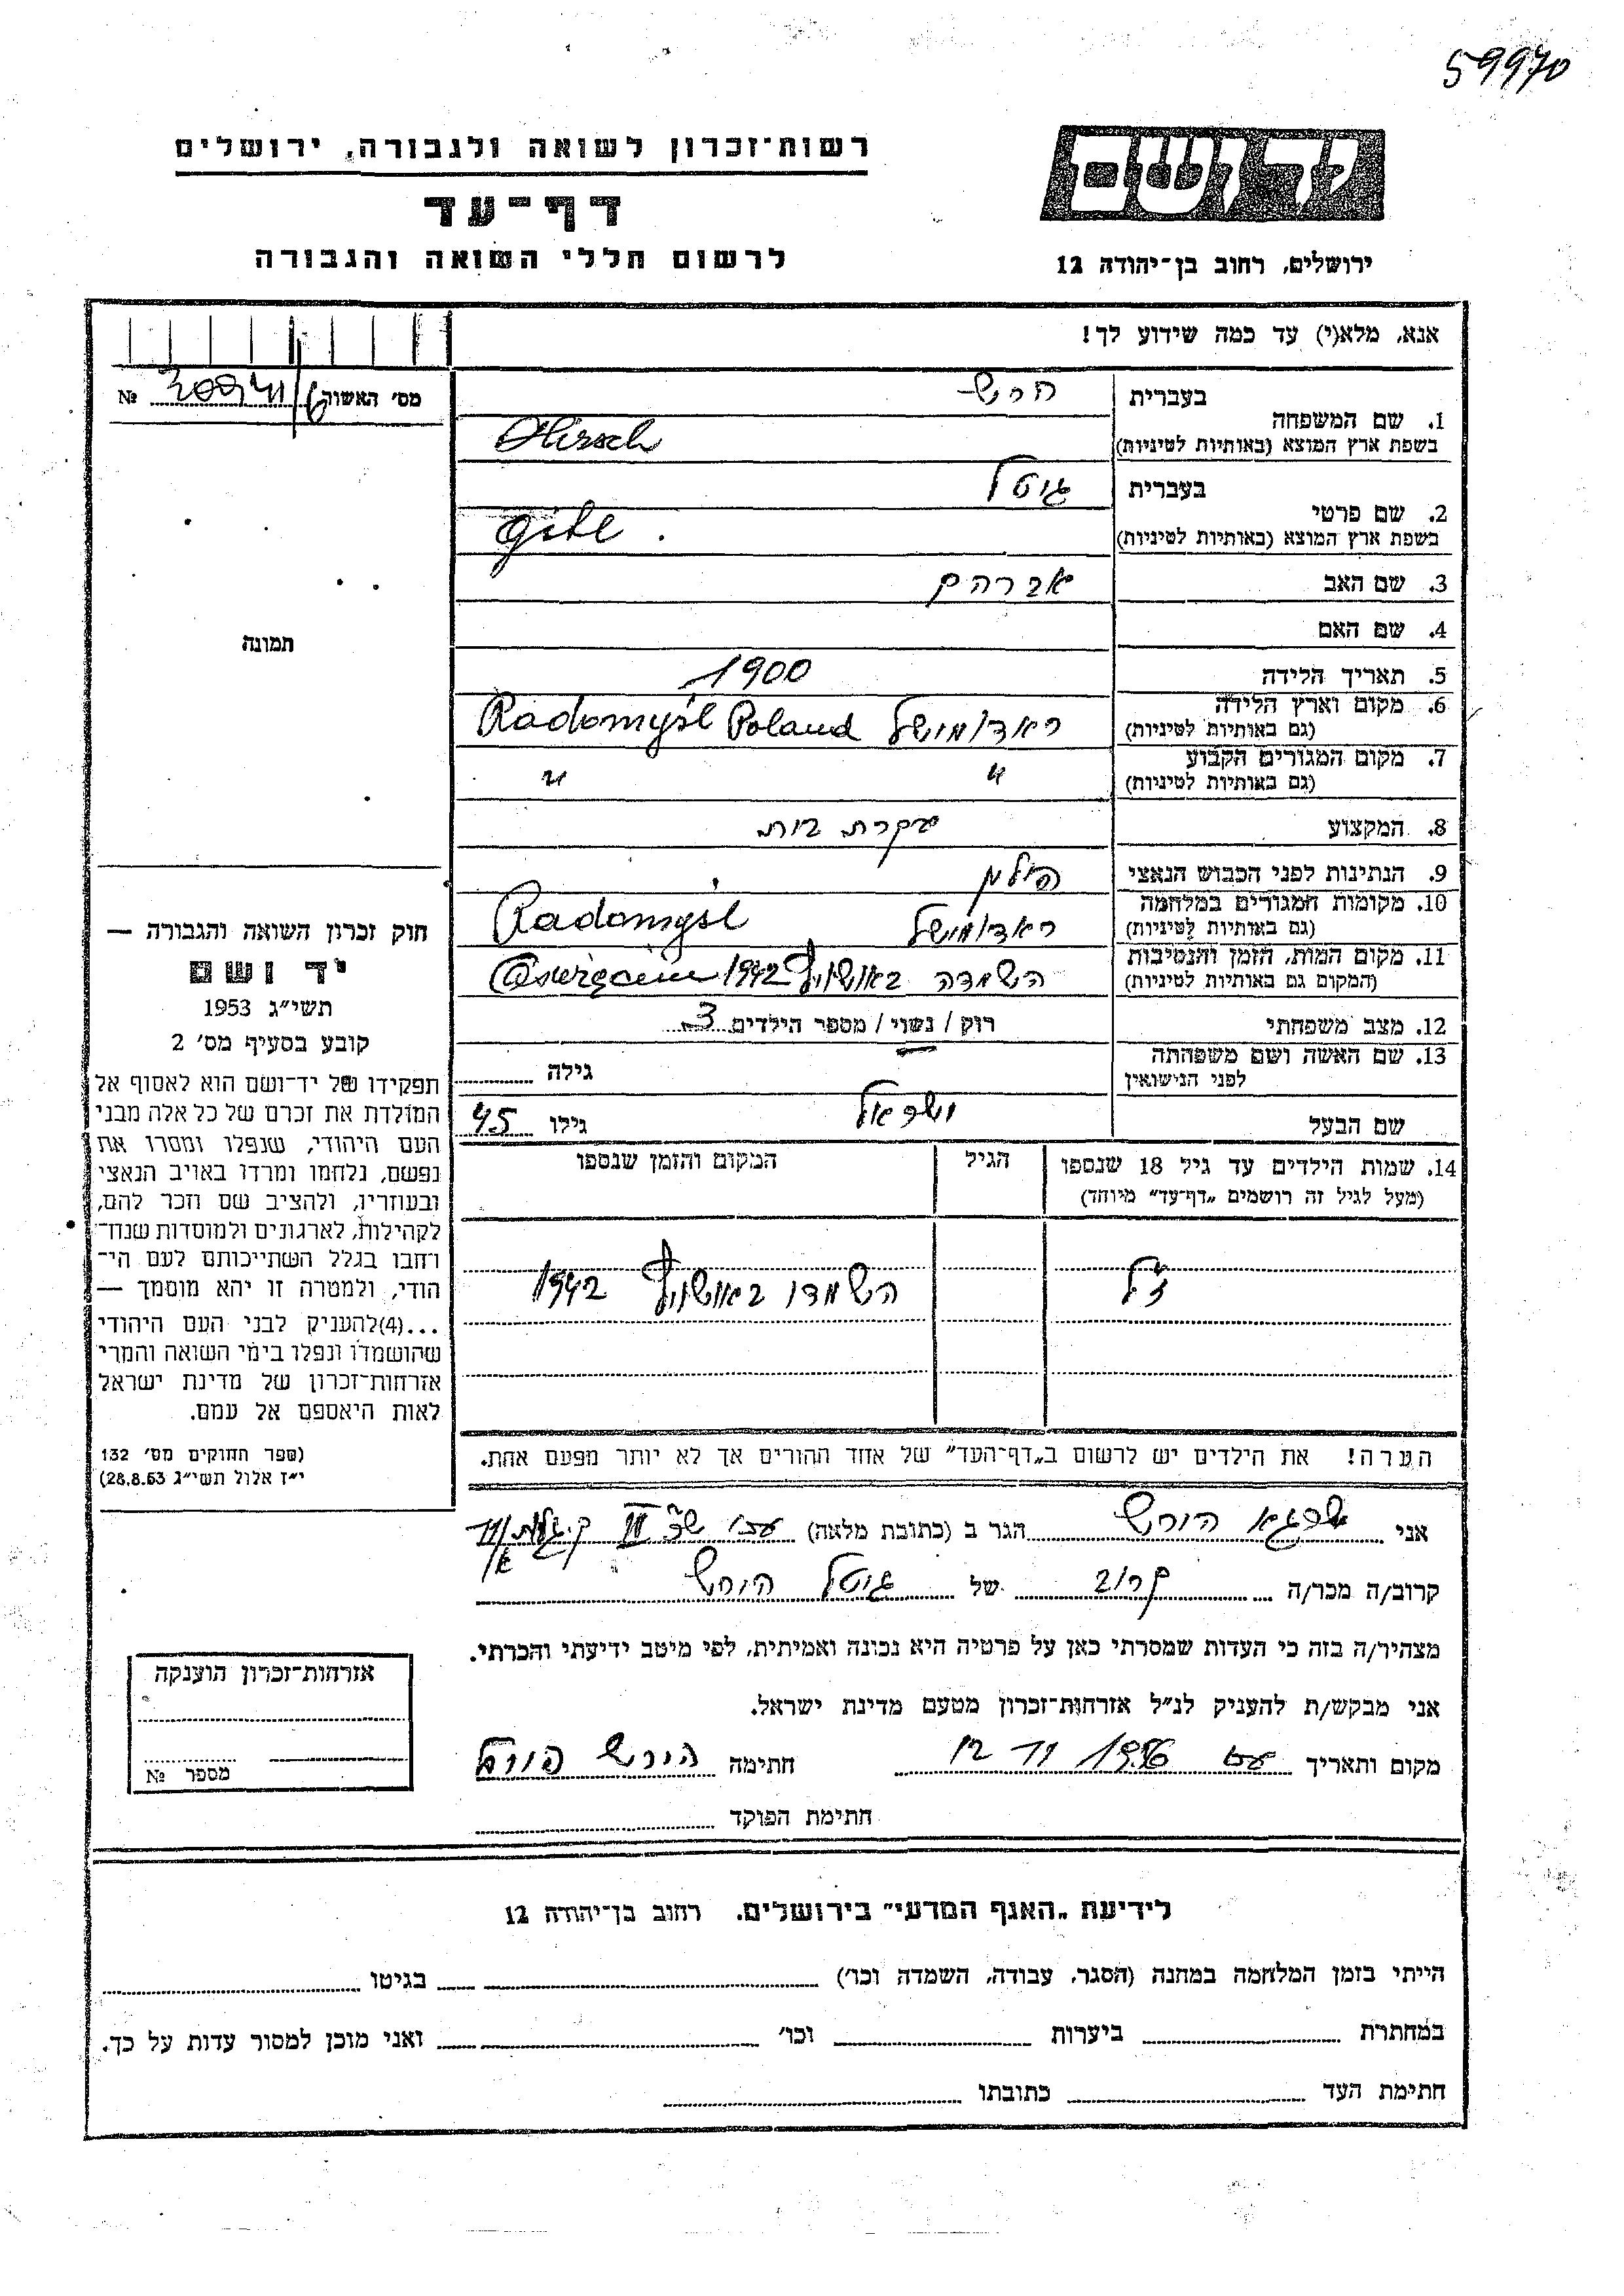 59970
ידושם
רשות־זכרון לשואה ולגבורה, ירושלים
דף־עד
לרשום חללי השואה והגבורה
ירושלים, רחוב בן־יהודה 12
אנא, מלא(י) עד כמה שידוע לך!
מס' האשור №
1. שם המשפחה
בעברית הירש
בשפת ארץ המוצא (באותיות לטיניות) Hirsch
2. שם פרטי
בעברית גיטל
בשפת ארץ המוצא (באותיות לטיניות) Gitl
3. שם האב אברהם
4. שם האם
5. תאריך הלידה 1900
6. מקום וארץ הלידה ראדומישל Radomyśl Poland
(גם באותיות לטיניות)
7. מקום המגורים הקבוע " "
(גם באותיות לטיניות)
8. המקצוע עקרת בית
9. הנתינות לפני הכבוש הנאצי פולין
10. מקומות המגורים במלחמה ראדומישל Radomyśl
(גם באותיות לטיניות)
11. מקום המות, הזמן והנסיבות השמדה באושוויץ 1942 Oświęcim
(המקום גם באותיות לטיניות)
12. מצב משפחתי רוק / נשוי / מספר הילדים 3
13. שם האשה ושם משפחתה גילה
לפני הנישואין
שם הבעל ישראל גילו 45
14. שמות הילדים עד גיל 18 שנספו הגיל המקום והזמן שנספו
(מעל לגיל זה רושמים „דף־עד" מיוחד)
השמדו באושוויץ 1942
הערה! את הילדים יש לרשום ב„דף־העד" של אחד ההורים אך לא יותר מפעם אחת.
תמונה
חוק זכרון השואה והגבורה —
יד ושם
תשי״ג 1953
קובע בסעיף מס' 2
תפקידו של יד־ושם הוא לאסוף אל
המולדת את זכרם של כל אלה מבני
העם היהודי, שנפלו ומסרו את
נפשם, נלחמו ומרדו באויב הנאצי
ובעוזריו, ולהציב שם וזכר להם,
לקהילות, לארגונים ולמוסדות שנח־
רחבו בגלל השתייכותם לעם הי־
הודי, ולמטרה זו יהא מוסמך —
...(4)להעניק לבני העם היהודי
שהושמדו ונפלו בימי השואה והמרי
אזרחות־זכרון של מדינת ישראל
לאות היאספם אל עמם.
(ספר החוקים מס' 132
י״ז אלול תשי״ג 28.8.53)
אני שרגא הירש הגר ב (כתובת מלאה)
קרוב/ה מכר/ה קרוב של גיטל הירש
מצהיר/ה בזה כי העדות שמסרתי כאן על פרטיה היא נכונה ואמיתית, לפי מיטב ידיעתי והכרתי.
אני מבקש/ת להעניק לנ״ל אזרחות־זכרון מטעם מדינת ישראל.
מקום ותאריך 12 VI 1956 חתימה הירש
חתימת הפוקד
אזרחות־זכרון הוענקה
מספר №
לידיעת „האגף המדעי" בירושלים, רחוב בן־יהודה 12
הייתי בזמן המלחמה במחנה (הסגר, עבודה, השמדה וכו') בגיטו
במחתרת ביערות וכו' ואני מוכן למסור עדות על כך.
חתימת העד כתובתו